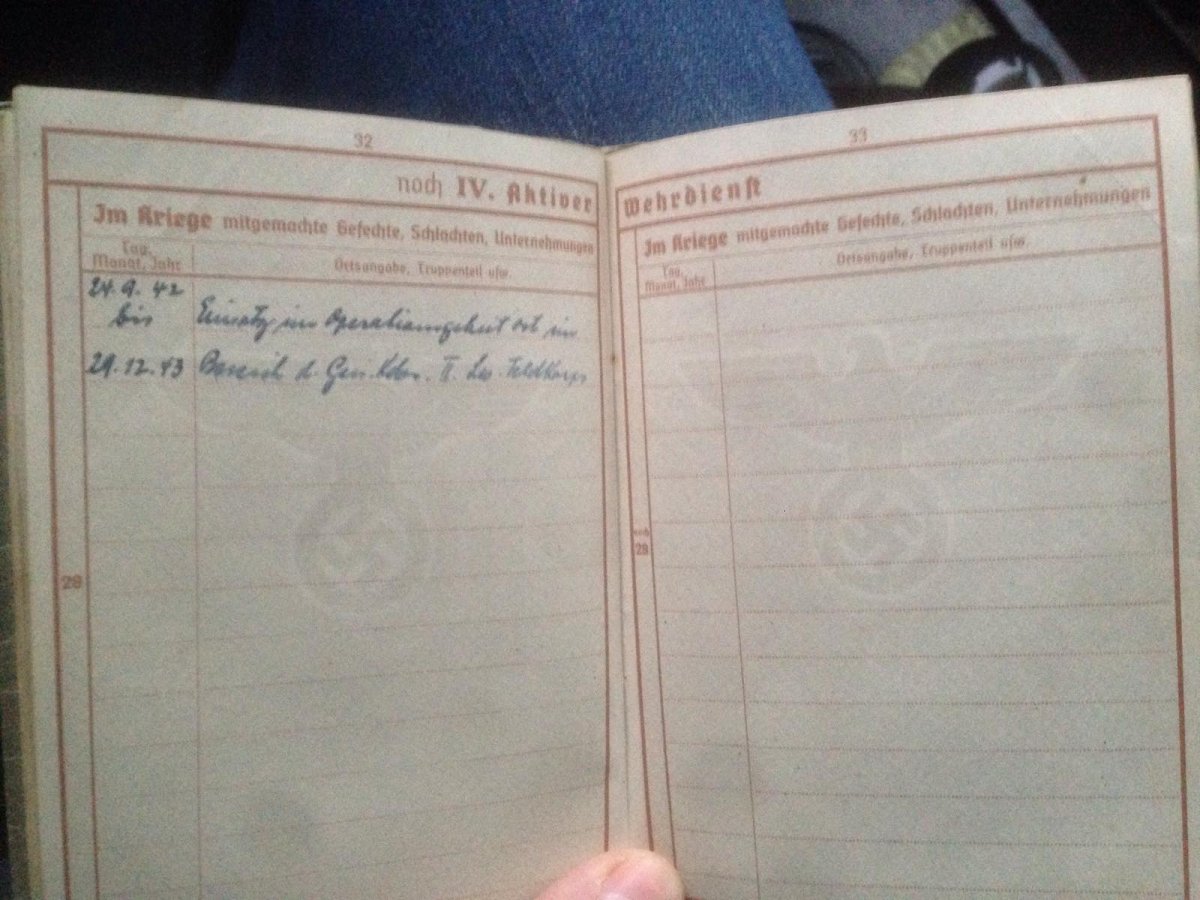 32
noch IV. Aktiver
Im Kriege mitgemachte Gefechte, Schlachten, Unternehmungen
Tag,
Monat, Jahr
Ortsangabe, Truppenteil usw.
24.9.42
bis
Einsatz im Operationsgebiet Ost im
29.12.43 Bereich d. Gen. Kdos. II. Lw. Feldkorps
29
33
Wehrdienst
Im Kriege mitgemachte Gefechte, Schlachten, Unternehmungen
Tag,
Monat, Jahr
Ortsangabe, Truppenteil usw.
noch
29